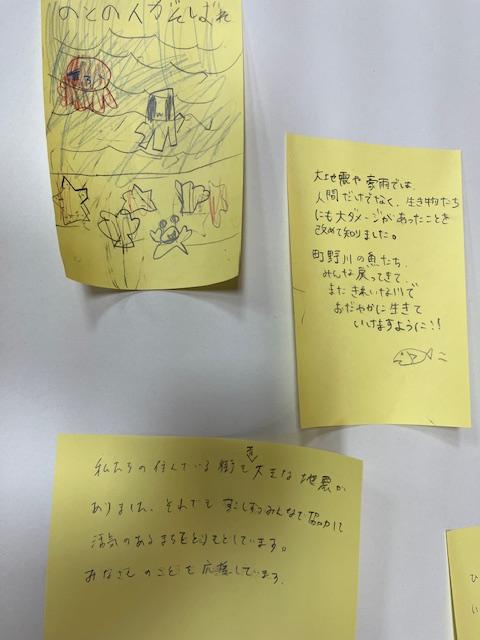 のとの人がんばれ
大地震や豪雨では、
人間だけでなく、生き物たち
にも大ダメージがあったことを
改めて知りました。
町野川の魚たち、
みんな戻ってきて、
またきれいな川で
おだやかに生きて
いけますように!!
私たちの住んでいる街も大きな地震が
ありました。それでも少しずつみんなで協力して
活気のあるまちをとりもどしています。
みなさんのことを応援しています。
ひ
い